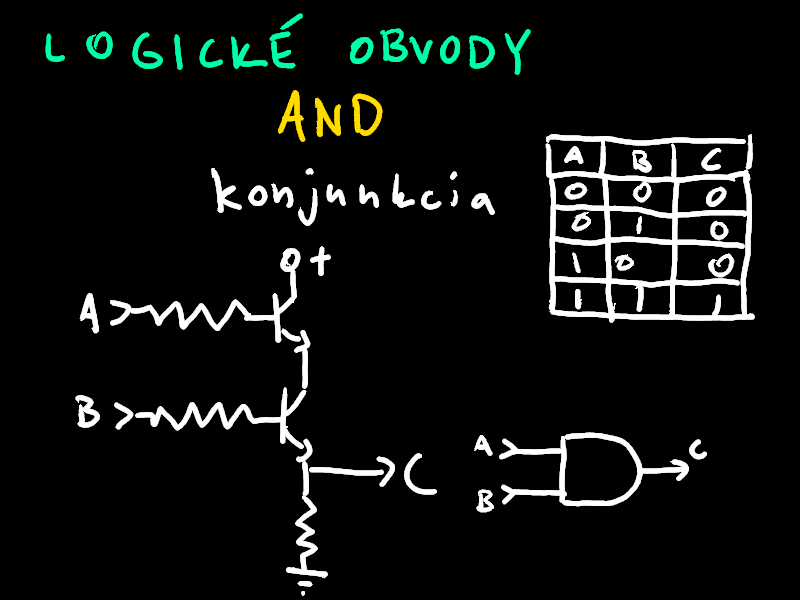 LOGICKÉ OBVODY
AND
konjunkcia
A B C
0 0 0
0 1 0
1 0 0
1 1 1
+
A
B
C
A
B
C